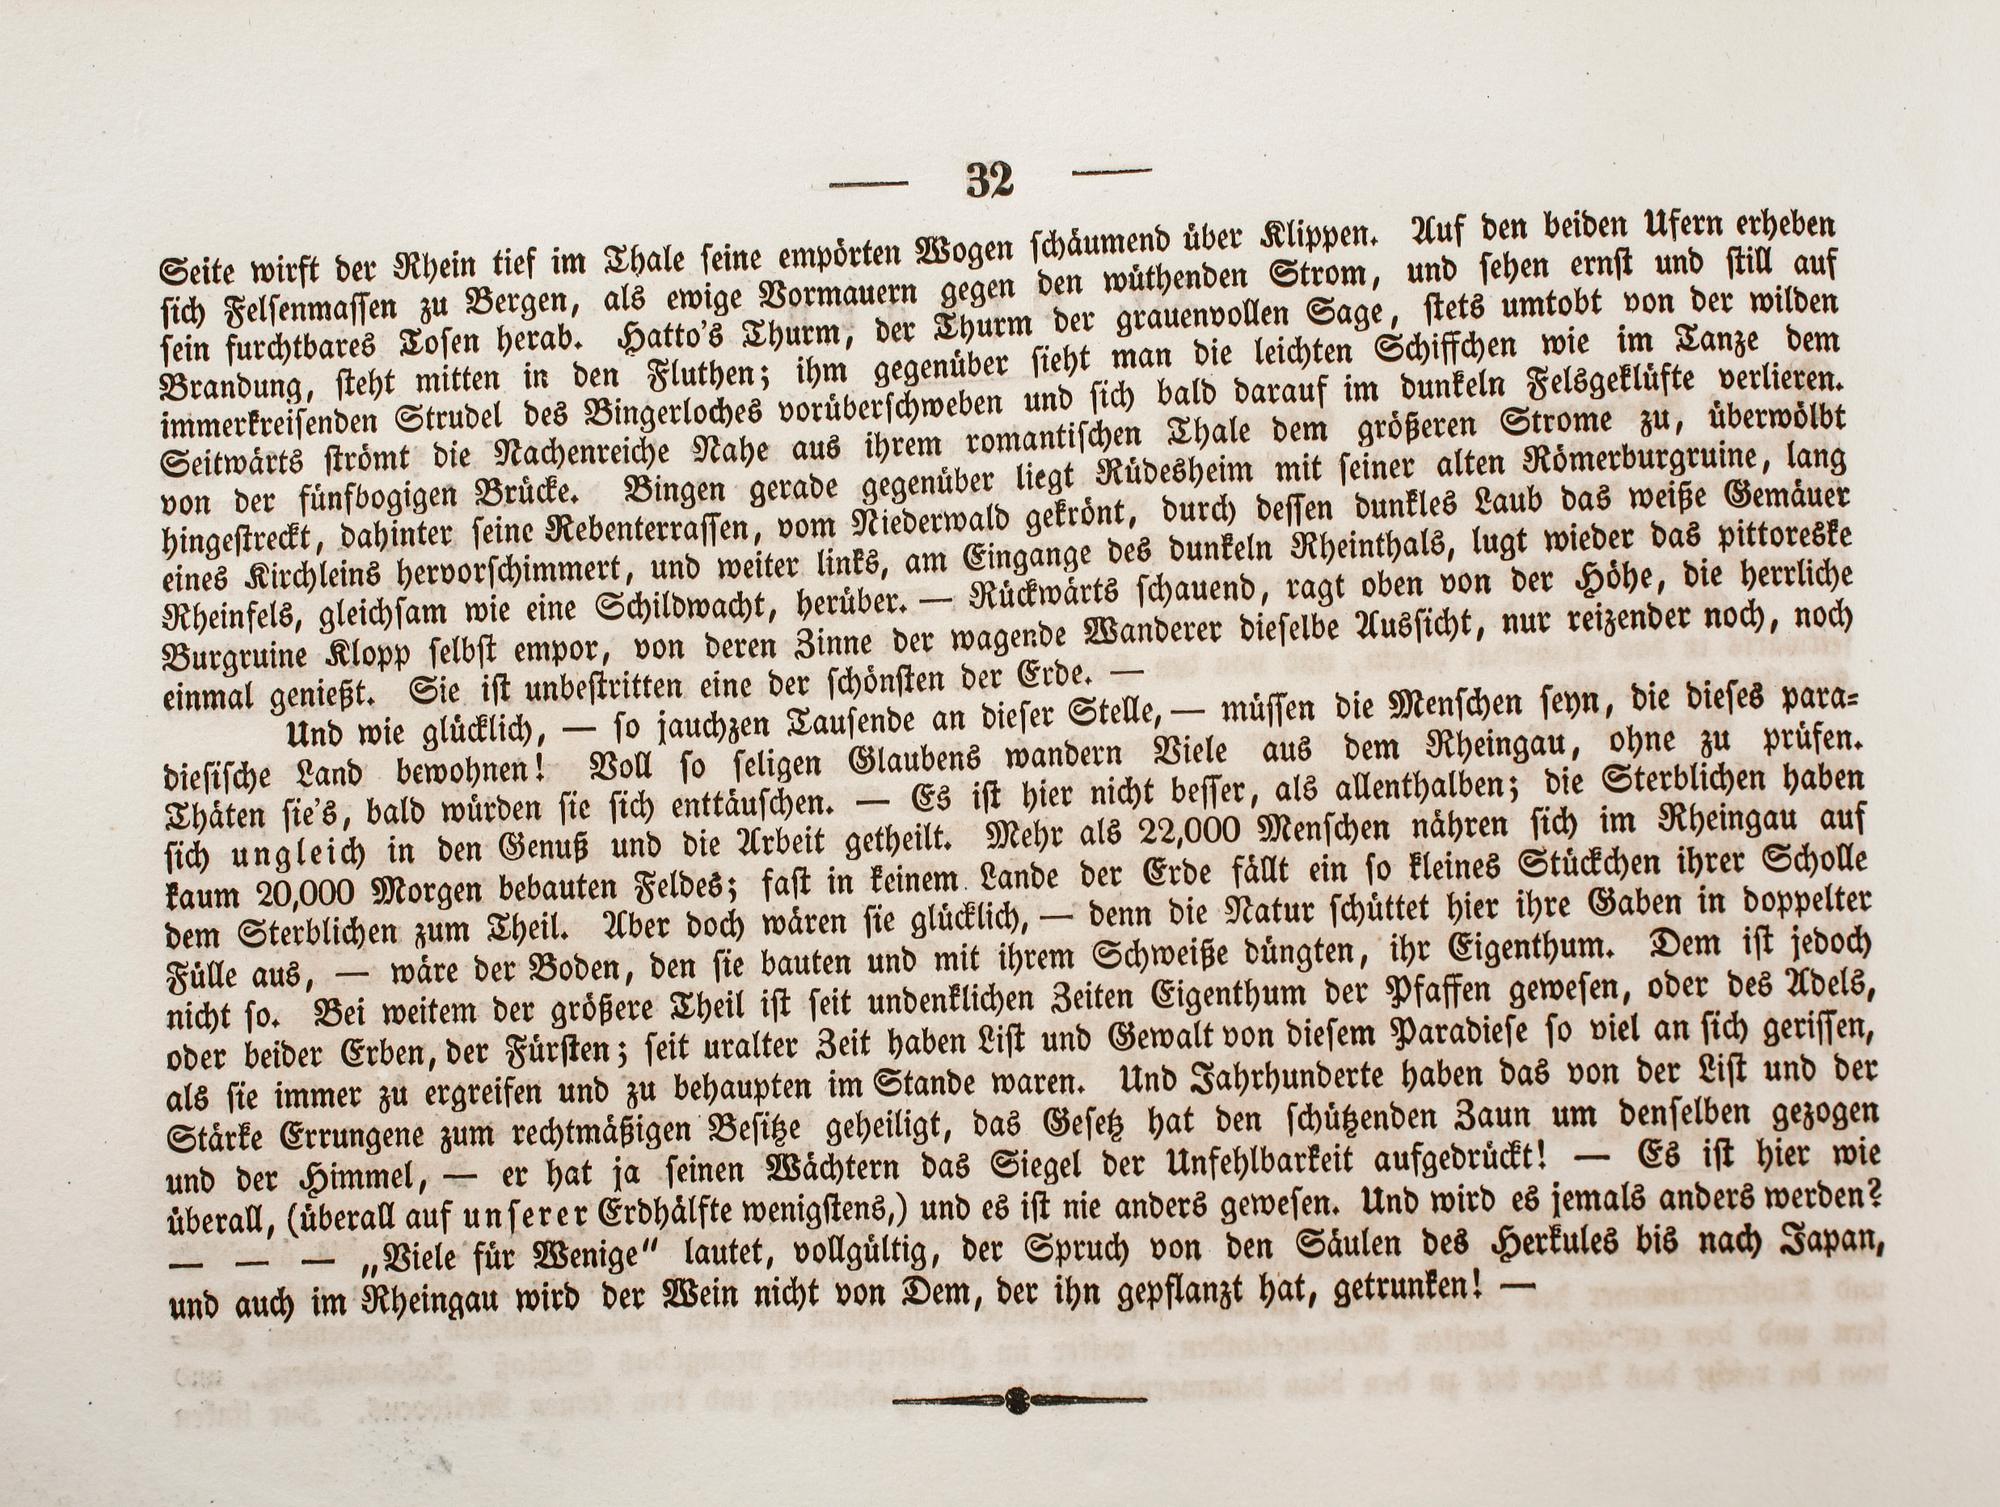 — 32 —
Seite wirft der Rhein tief im Thale seine empörten Wogen schäumend über Klippen. Auf den beiden Ufern erheben
sich Felsenmassen zu Bergen, als ewige Vormauern gegen den wüthenden Strom, und sehen ernst und still auf
sein furchtbares Tosen herab. Hatto's Thurm, der Thurm der grauenvollen Sage, stets umtobt von der wilden
Brandung, steht mitten in den Fluthen; ihm gegenüber sieht man die leichten Schiffchen wie im Tanze dem
immerkreisenden Strudel des Bingerloches vorüberschweben und sich bald darauf im dunkeln Felsgeklüfte verlieren.
Seitwärts strömt die Nachenreiche Nahe aus ihrem romantischen Thale dem größeren Strome zu, überwölbt
von der fünfbogigen Brücke. Bingen gerade gegenüber liegt Rüdesheim mit seiner alten Römerburgruine, lang
hingestreckt, dahinter seine Rebenterrassen, vom Niederwald gekrönt, durch dessen dunkles Laub das weiße Gemäuer
eines Kirchleins hervorschimmert, und weiter links, am Eingange des dunkeln Rheinthals, lugt wieder das pittoreske
Rheinfels, gleichsam wie eine Schildwacht, herüber. — Rückwärts schauend, ragt oben von der Höhe, die herrliche
Burgruine Klopp selbst empor, von deren Zinne der wagende Wanderer dieselbe Aussicht, nur reizender noch, noch
einmal genießt. Sie ist unbestritten eine der schönsten der Erde. —
Und wie glücklich, — so jauchzen Tausende an dieser Stelle, — müssen die Menschen seyn, die dieses para-
diesische Land bewohnen! Voll so seligen Glaubens wandern Viele aus dem Rheingau, ohne zu prüfen.
Thäten sie's, bald würden sie sich enttäuschen. — Es ist hier nicht besser, als allenthalben; die Sterblichen haben
sich ungleich in den Genuß und die Arbeit getheilt. Mehr als 22,000 Menschen nähren sich im Rheingau auf
kaum 20,000 Morgen bebauten Feldes; fast in keinem Lande der Erde fällt ein so kleines Stückchen ihrer Scholle
dem Sterblichen zum Theil. Aber doch wären sie glücklich, — denn die Natur schüttet hier ihre Gaben in doppelter
Fülle aus, — wäre der Boden, den sie bauten und mit ihrem Schweiße düngten, ihr Eigenthum. Dem ist jedoch
nicht so. Bei weitem der größere Theil ist seit undenklichen Zeiten Eigenthum der Pfaffen gewesen, oder des Adels,
oder beider Erben, der Fürsten; seit uralter Zeit haben List und Gewalt von diesem Paradiese so viel an sich gerissen,
als sie immer zu ergreifen und zu behaupten im Stande waren. Und Jahrhunderte haben das von der List und der
Stärke Errungene zum rechtmäßigen Besitze geheiligt, das Gesetz hat den schützenden Zaun um denselben gezogen
und der Himmel, — er hat ja seinen Wächtern das Siegel der Unfehlbarkeit aufgedrückt! — Es ist hier wie
überall, (überall auf unserer Erdhälfte wenigstens,) und es ist nie anders gewesen. Und wird es jemals anders werden?
— — — „Viele für Wenige“ lautet, vollgültig, der Spruch von den Säulen des Herkules bis nach Japan,
und auch im Rheingau wird der Wein nicht von Dem, der ihn gepflanzt hat, getrunken! —